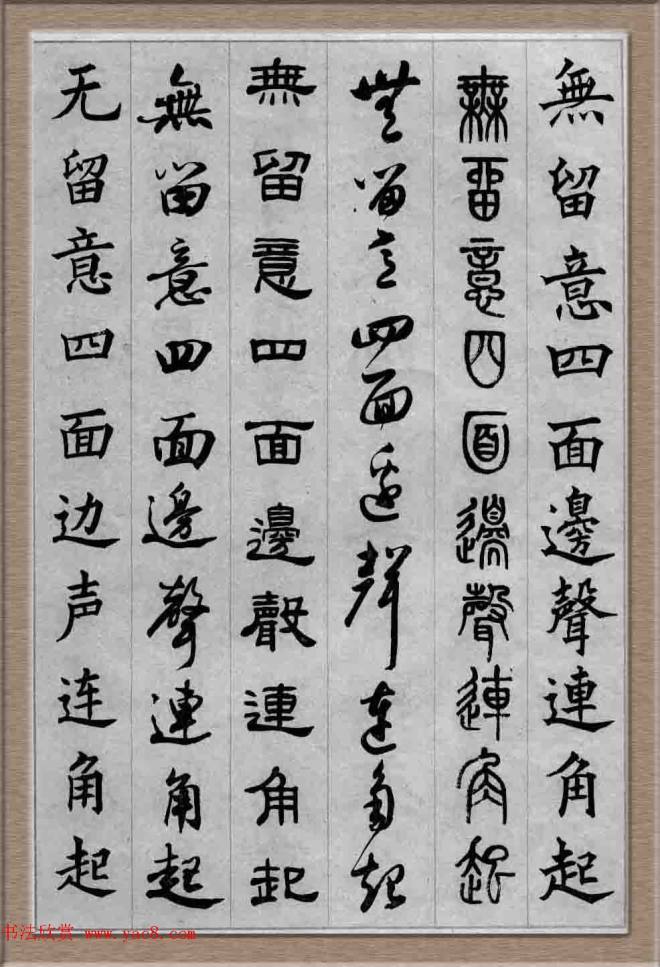 無留意四面邊聲連角起
無留意四面邊聲連角起
無留意四面邊聲連角起
無留意四面邊聲連角起
無留意四面邊聲連角起
无留意四面边声连角起
书法欣赏 www.yac8.com